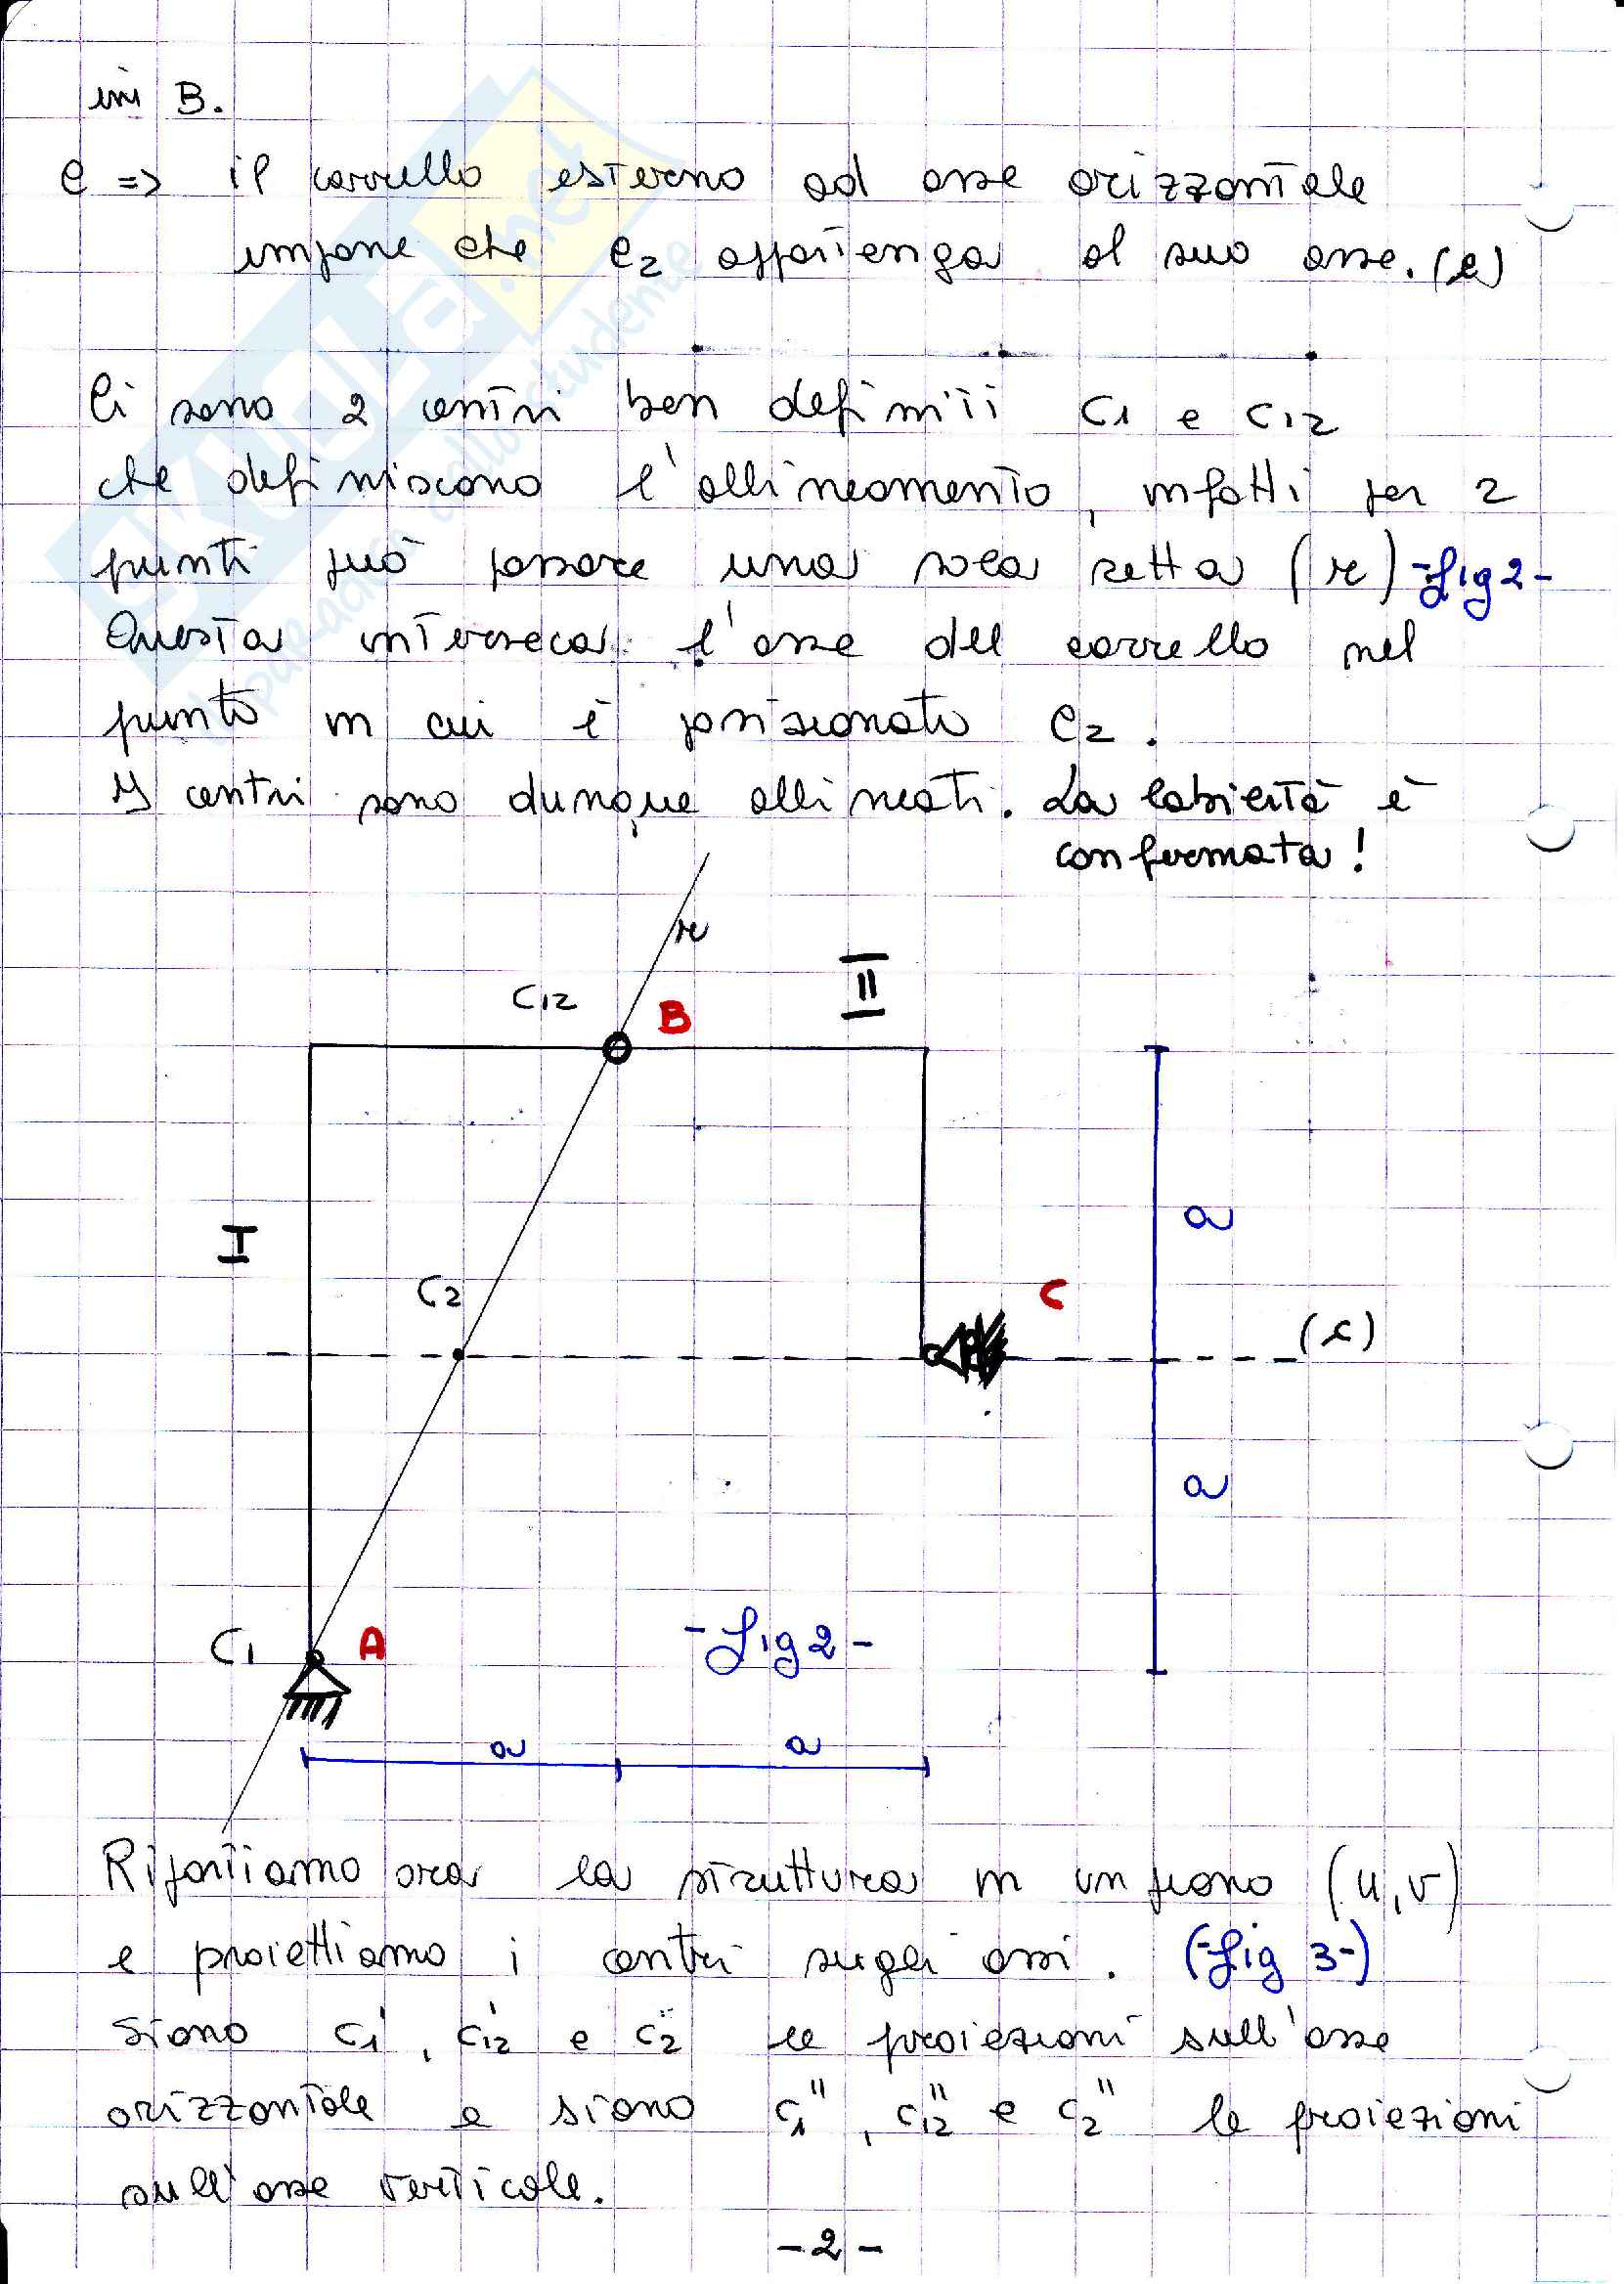 in B.
C => il carrello esterno ad asse orizzontale
impone che C2 appartenga al suo asse. (c)
Ci sono 2 centri ben definiti C1 e C12
che definiscono l'allineamento, infatti per 2
punti può passare una sola retta (r) -fig 2-
Questa interseca l'asse del carrello nel
punto in cui è posizionato C2.
I centri sono dunque allineati. La labilità è
confermata!
r
C12
B
II
a
I
C2
C
(c)
a
C1
A
-fig 2-
a
a
Riportiamo ora la struttura in un piano (u,v)
e proiettiamo i centri sugli assi. (-fig 3-)
Siano C1', C12' e C2' le proiezioni sull'asse
orizzontale e siano C1'', C12'' e C2'' le proiezioni
sull'asse verticale.
-2-
SKUOLA.net